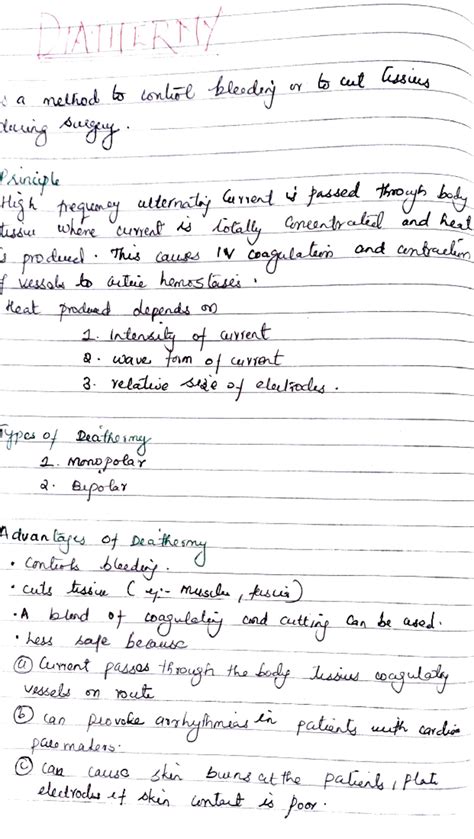 DIATHERMY
a method to control bleeding or to cut tissius
during surgery.
Principle
High frequency alternating current is passed through body
tissue where current is totally concentrated and heat
is produced. This causes IV coagulation and contraction
of vessels to achive hemostases.
Heat produced depends on
1. Intensity of current
2. wave form of current
3. relative size of electrodes.
Types of Deathermy
1. Monopolar
2. Bipolar
Advantages of Deathermy
• Controls bleeding.
• cuts tissue ( eg:- muscles, fascia)
• A blend of coagulating and cutting can be used.
• Less safe because
ⓐ Current passes through the body tissues coagulatg
vessels on route
ⓑ can provoke arrhythmias in patients with cardiac
pacemakers.
ⓒ can cause skin burns at the patients, plate
electrodes if skin contact is poor.